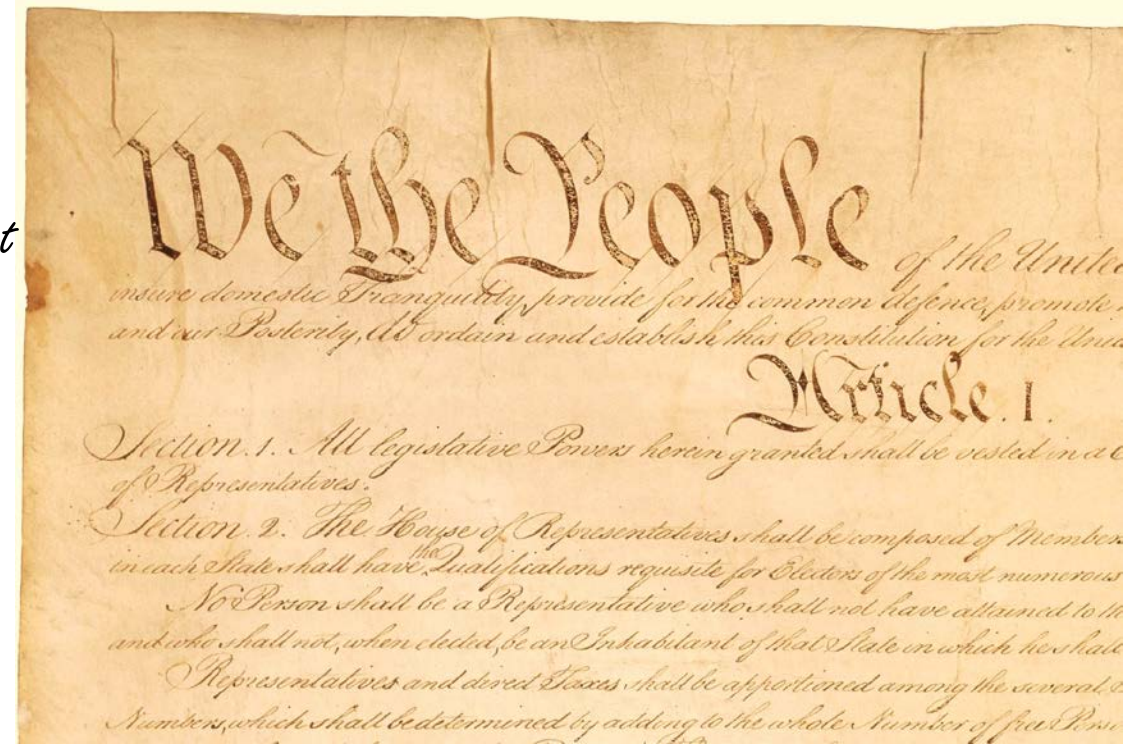 t
We the People of the United
insure domestic Tranquility, provide for the common defence, promote
and our Posterity, do ordain and establish this Constitution for the Unit
Article. I.
Section. 1. All legislative Powers herein granted shall be vested in a C
of Representatives.
Section. 2. The House of Representatives shall be composed of Members
in each State shall have the Qualifications requisite for Electors of the most numerous
No Person shall be a Representative who shall not have attained to th
and who shall not, when elected, be an Inhabitant of that State in which he shall
Representatives and direct Taxes shall be apportioned among the several
Numbers, which shall be determined by adding to the whole Number of free Perso